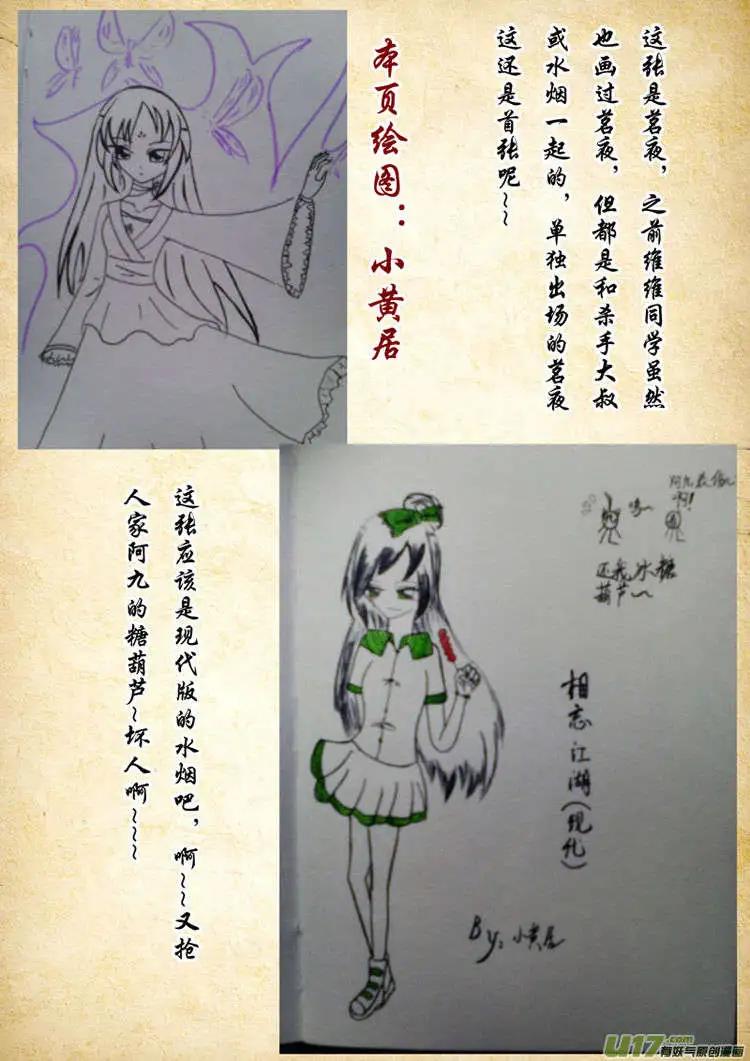 这张是茗夜，之前维维同学虽然
也画过茗夜，但都是和杀手大叔
或水烟一起的，单独出场的茗夜
这还是首张呢~~
本页绘图：小黄居
这张应该是现代版的水烟吧，啊~~又抢
人家阿九的糖葫芦~坏人啊~~~
还我冰糖
葫芦~
相忘江湖(现代)
By：小黄居
U17.com
有妖气原创漫画